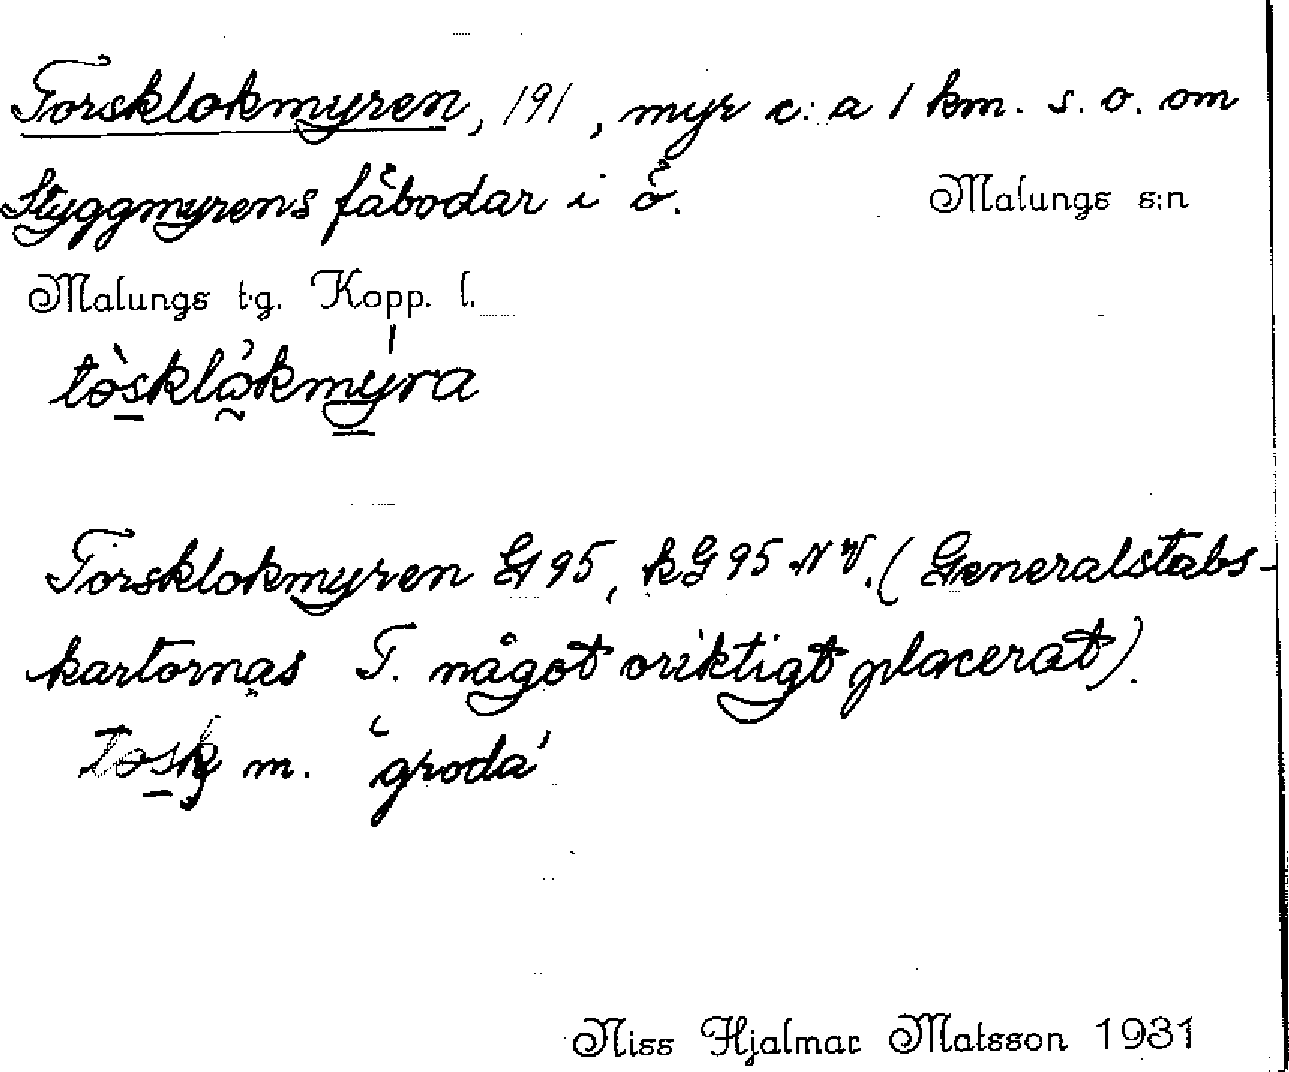 Torsklokmyren, 191, myr c:a 1 km. s. o. om
Styggmyrens fäbodar i ö. Malungs s:n
Malungs t.g. Kopp. l.
tòsklåkmýra
Torsklokmyren G95, kG95 NV. (Generalstabs-
kartornas T. något oriktigt placerat).
tosk m. 'groda'
Niss Hjalmar Matsson 1931